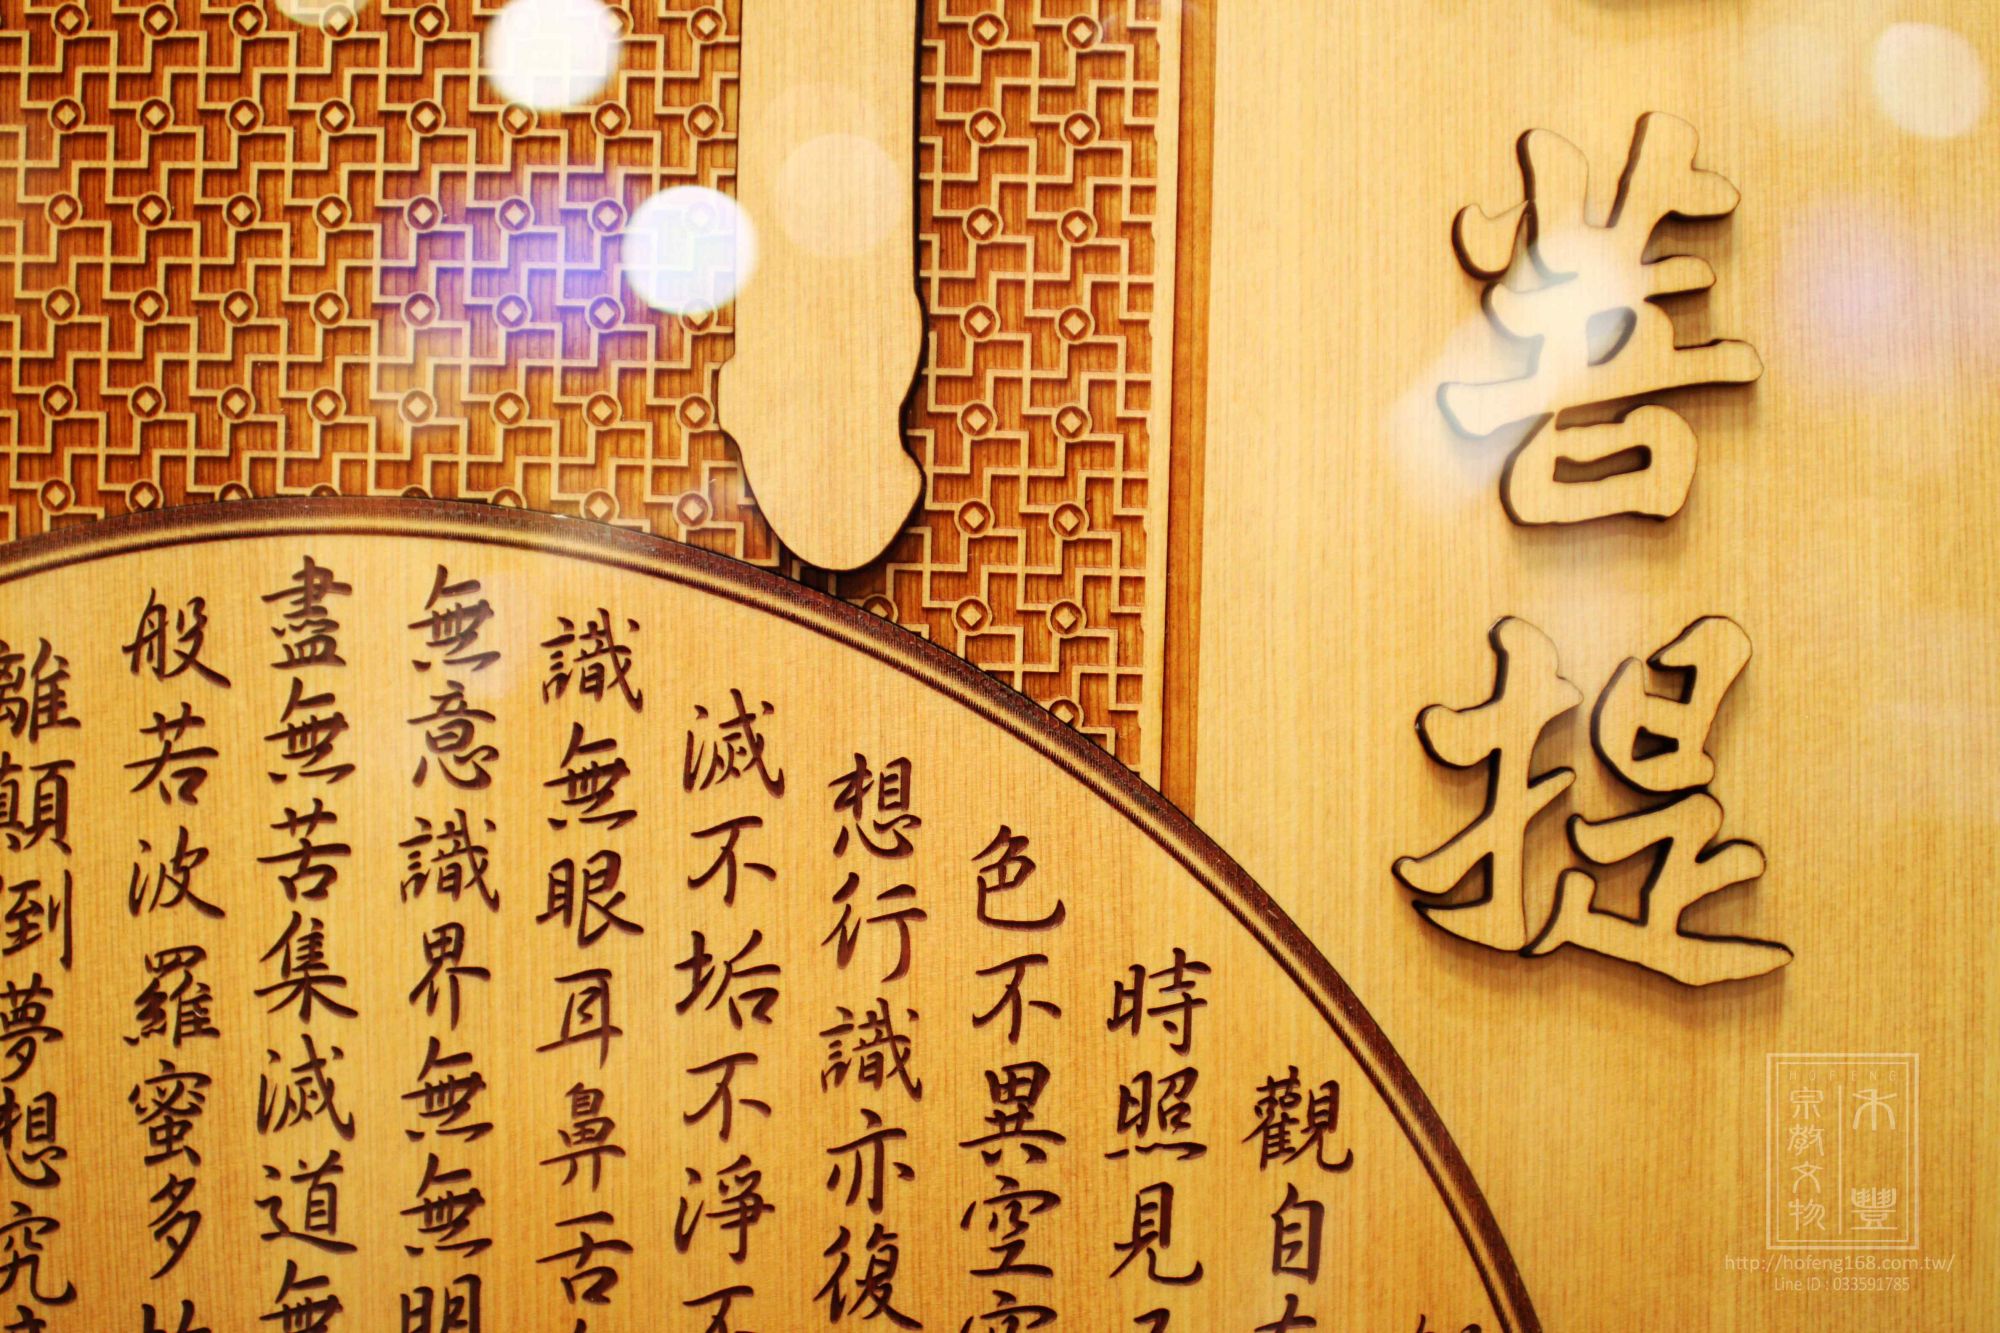 菩提
觀自
時照見
色不異空
想行識亦復
滅不垢不淨不
識無眼耳鼻舌
無意識界無無明
盡無苦集滅道無
般若波羅蜜多
離顛倒夢想究
HOFENG
禾豐
宗教文物
http://hofeng168.com.tw/
Line ID : 033591785